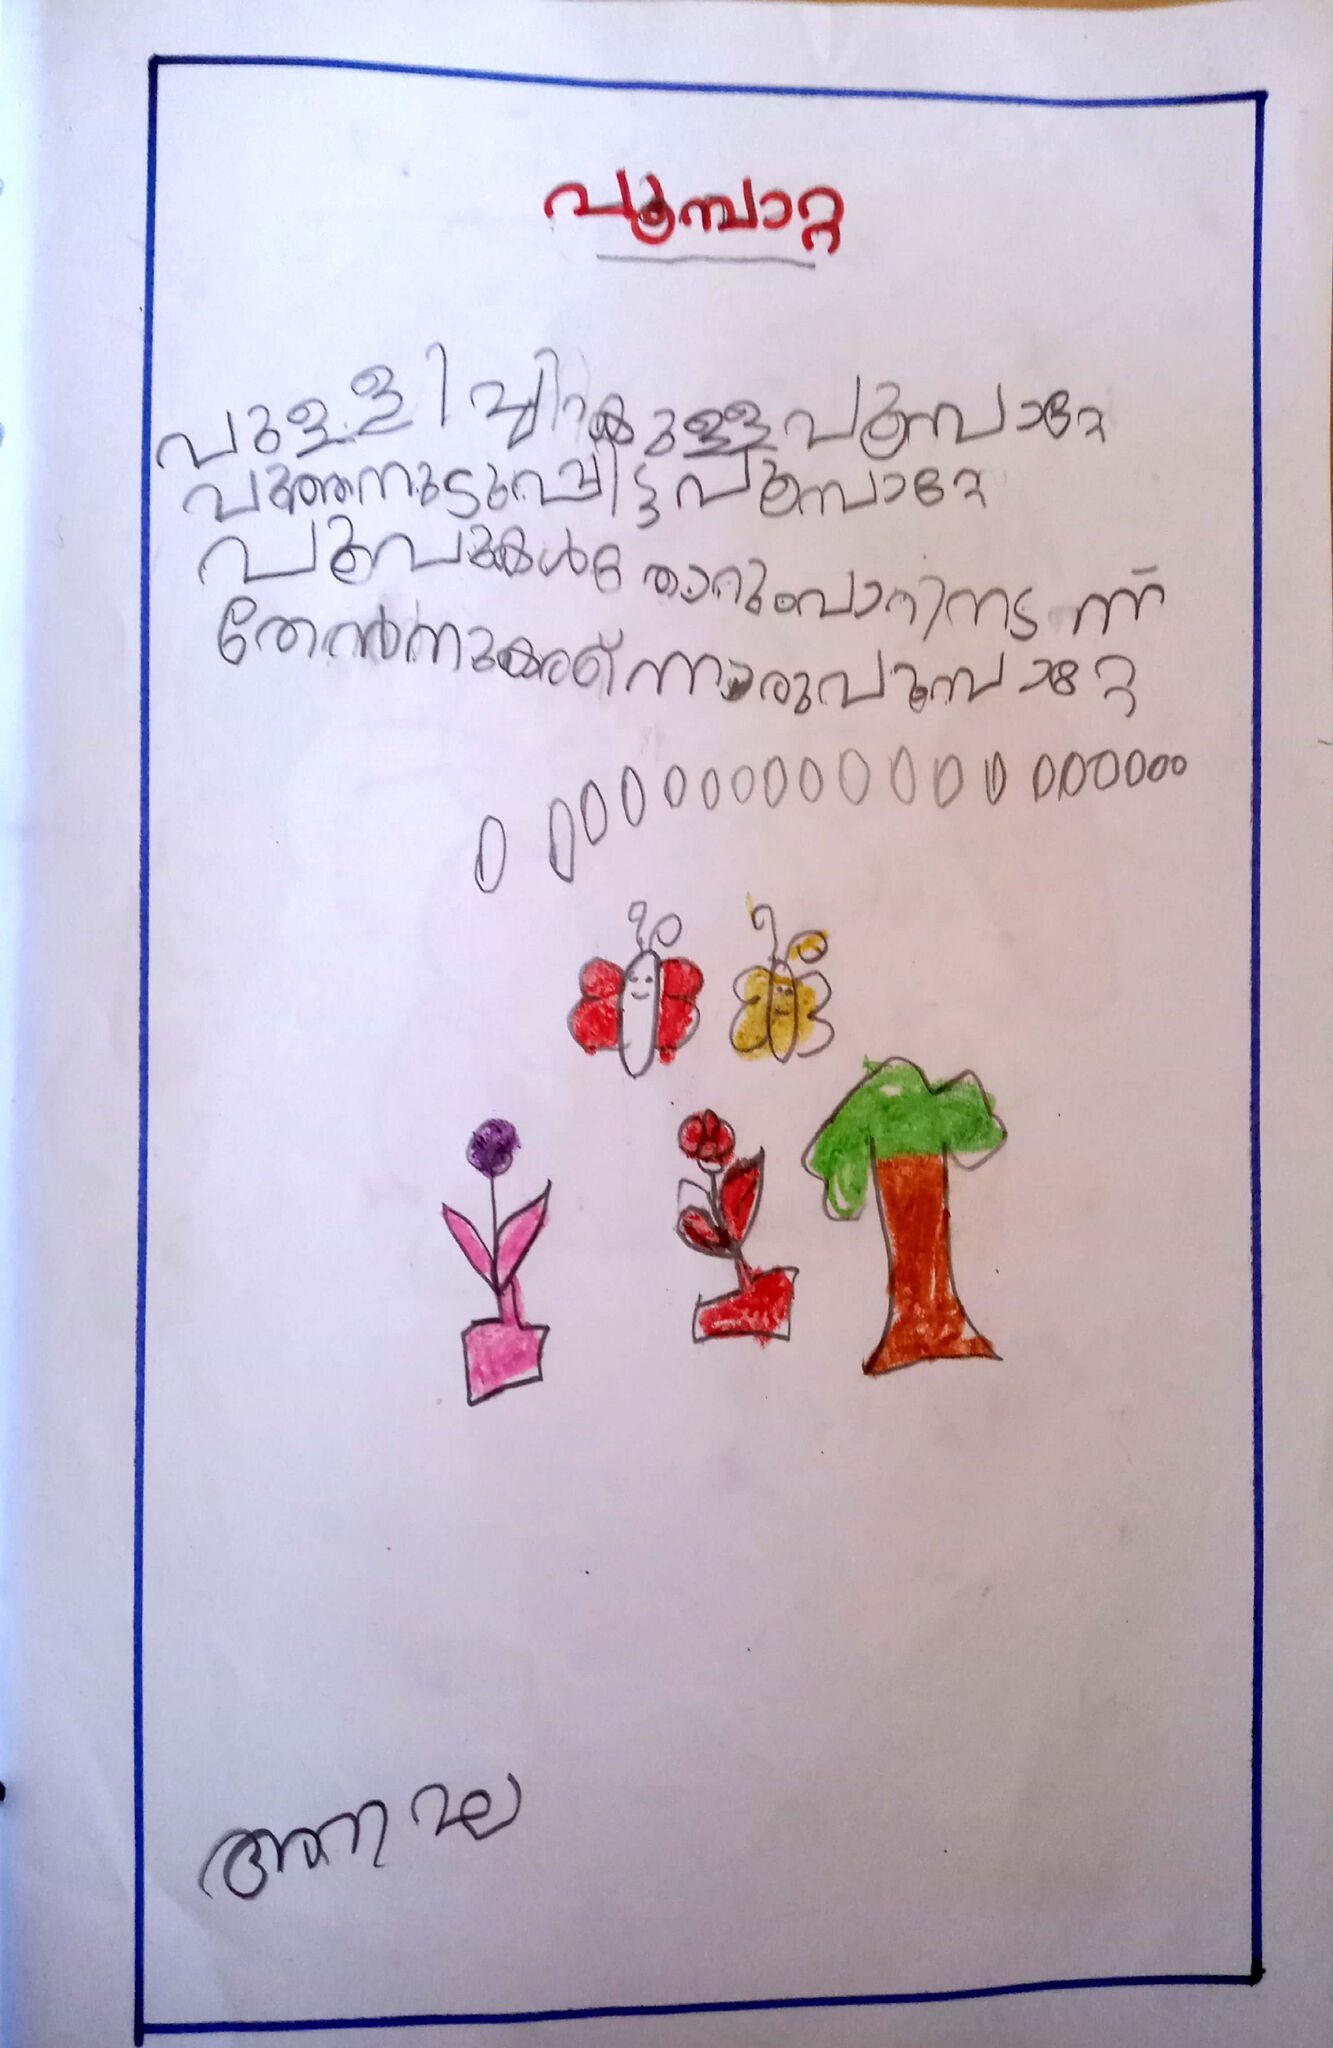 പൂമ്പാറ്റ
പുള്ളി ചിറകുള്ള പൂമ്പാറ്റേ
പുത്തനുടുപ്പിട്ട പൂമ്പാറ്റേ
പൂവുകൾതോറും പാറിനടന്ന്
തേൻനുകരന്നൊരു പൂമ്പാറ്റേ
അനഘ